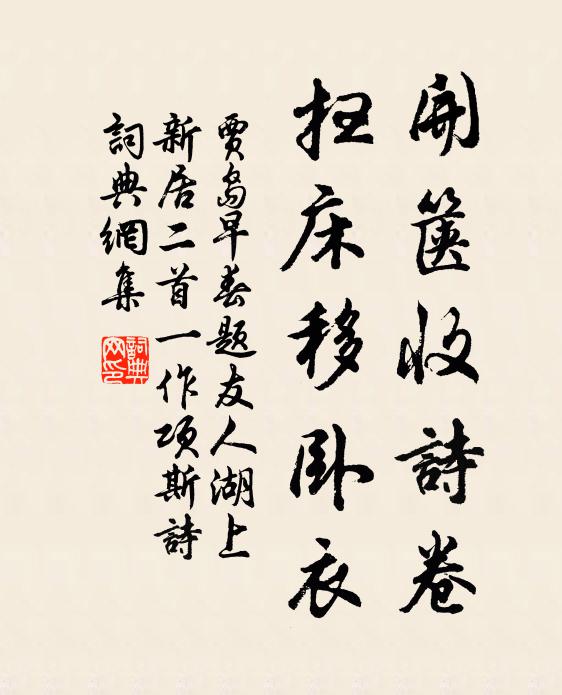 開篋收詩卷
扫床移卧衣
賈島早春題友人湖上
新居二首一作項斯詩
詞典網集
詞典網印